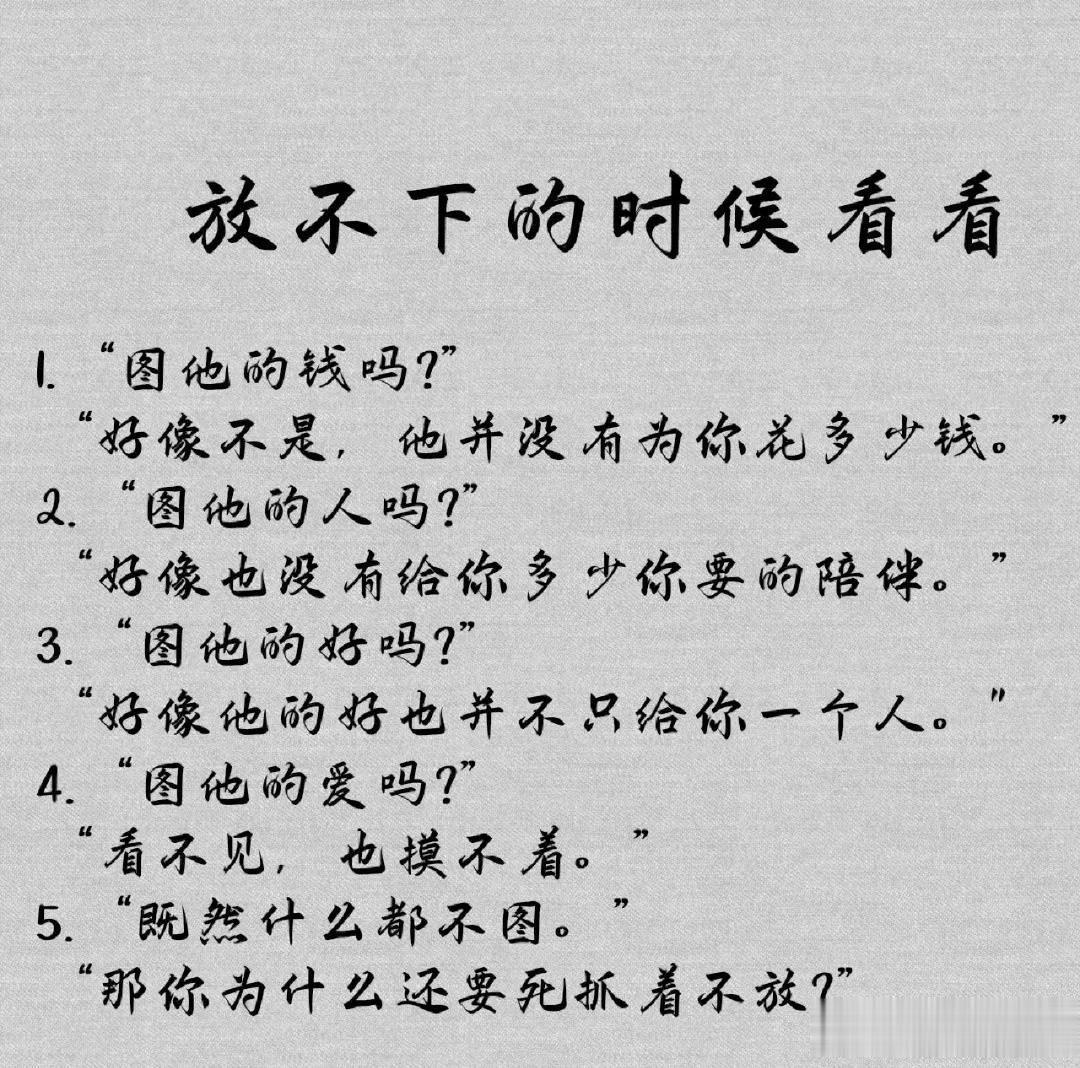 放不下的时候看看
1. “图他的钱吗?”
“好像不是, 他并没有为你花多少钱。”
2. “图他的人吗?”
“好像也没有给你多少你要的陪伴。”
3. “图他的好吗?”
“好像他的好也并不只给你一个人。"
4. “图他的爱吗?”
“看不见, 也摸不着。”
5. “既然什么都不图。”
“那你为什么还要死抓着不放?”